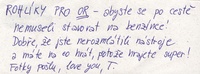 ROHLÍKY PRO OR – abyste se po cestě
nemuseli stavovat na benzínce!
Dobře, že jste nerozmlátili nástroje
a máte na co hrát, protože hrajete super!
Fotky pošlu, love you, T.